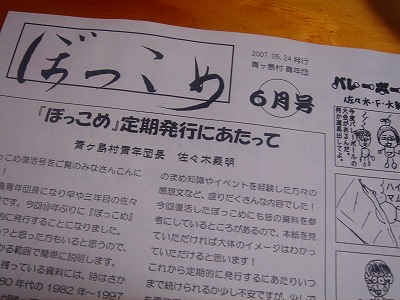 2007.05.24 発行
青ヶ島村 青年団
ぼっこめ
6月号
『ぼっこめ』定期発行にあたって
青ヶ島村青年団長 佐々木義明
っこめ復活号をご覧のみなさんこんに
青年団長になり早や三年目の佐々
です。今回10年ぶりに『ぼっこめ』
的に発行することになりました。
？と思った方もいると思うので、
かる範囲で簡単に説明します。
残っている資料には、時はさか
80年代の1982年～1997
のまめ知識やイベントを経験した方々の
感想文など、盛りだくさんな内容でした！
今回復活したぼっこめにも昔の資料を参
考にしているところがあるので、本紙を見
ていただければ大体のイメージはわかっ
ていただけると思います！
これから定期的に発行するにあたりいつ
まで続けられるか少し不安ですが、少しで
バレーボー
佐々木・F・大
今度バレーボールの
大会があるんだ。
何か道具出してよ。
ハイ
マム